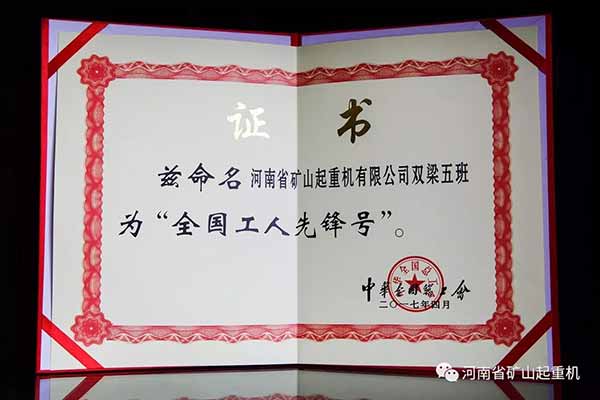 证 书
兹命名河南省矿山起重机有限公司双梁五班
为“全国工人先锋号”。
中华全国总工会
二〇一七年四月
河南省矿山起重机